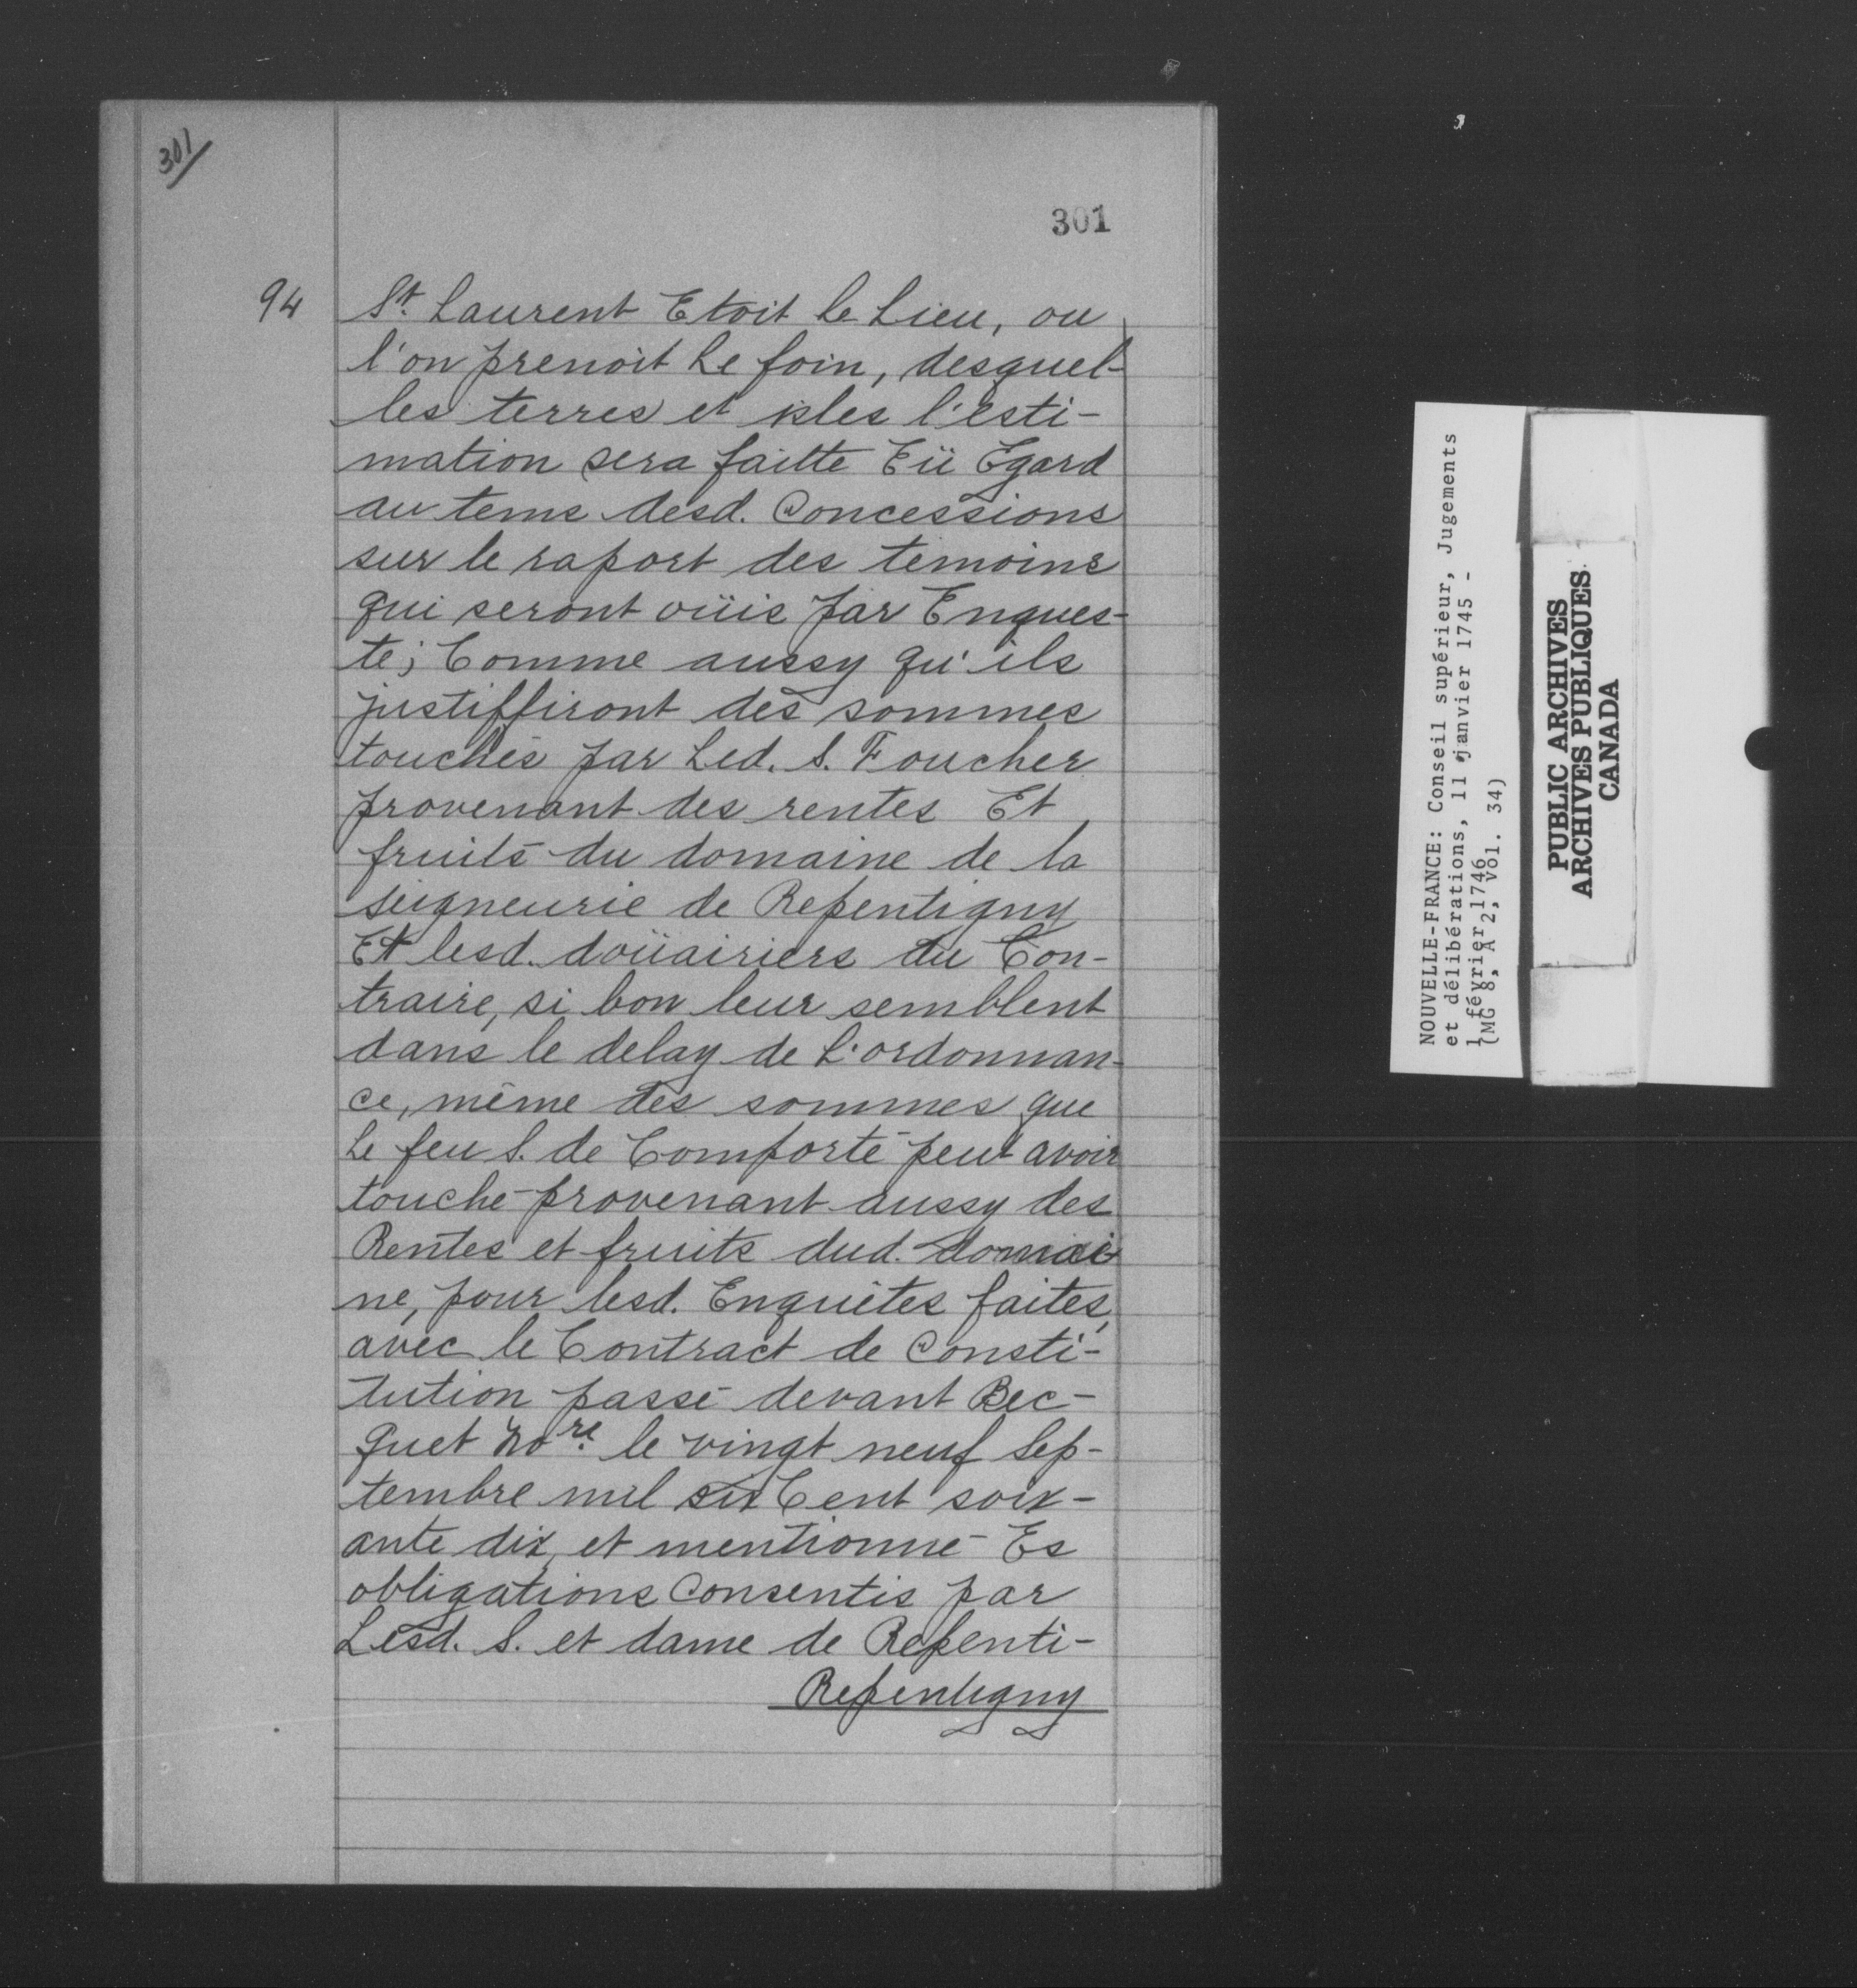 301/
301
94
St. Laurent Etoit le Lieu, ou
l'on prenoit Le foin, desquel-
les terres et isles l'esti-
mation sera faitte Eü Egard
au tems desd. Concessions
sur le raport des temoins
qui seront oüis par Enques-
te; Comme aussy qu'ils
justiffiront des sommes
touchés par Led. S. Foucher
provenant des rentes Et
fruits du domaine de la
seigneurie de Repentigny
Et lesd. doüairiers au Con-
traire, si bon leur semblent
dans le delay de L'ordonnan-
ce, même des sommes que
Le feu S. de Comporté peut avoir
touché provenant aussy des
Rentes et fruits dud. domai-
ne, pour lesd. Enquêtes faites,
avec le Contract de Consti-
tution passé devant Bec-
quet Nore. le vingt neuf Sep-
tembre mil six Cent soix-
ante dix, et mentionné Es
obligations Consentis par
Lesd. S. et dame de Repenti-
Repentigny
NOUVELLE-FRANCE: Conseil supérieur, Jugements
et délibérations, 11 janvier 1745 -
1 février 1746
(MG 8, A 2, vol. 34)
PUBLIC ARCHIVES
ARCHIVES PUBLIQUES
CANADA